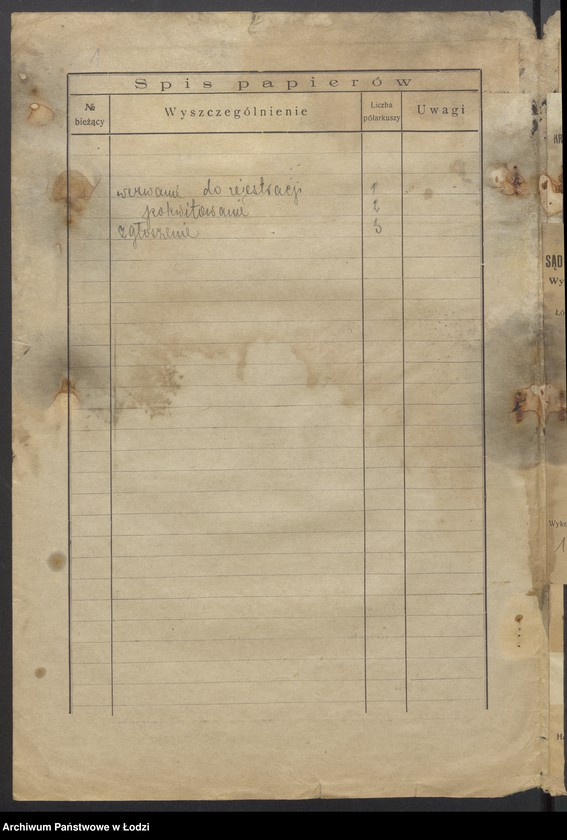 1
Spis papierów
№ bieżący
Wyszczególnienie
Liczba półarkuszy
Uwagi
wezwanie do rejestracji 1
pokwitowanie 2
zgłoszenie 3
SĄD
Wy
Wyko
1
Archiwum Państwowe w Łodzi